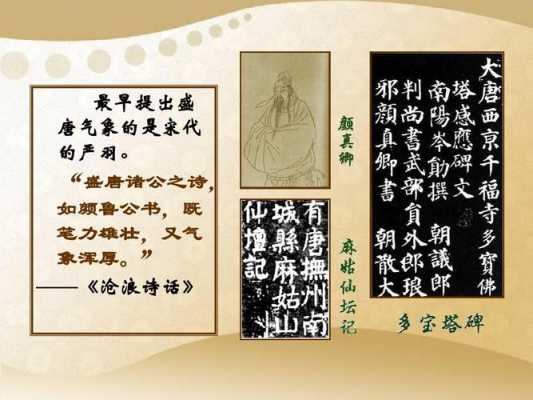 最早提出盛
唐气象的是宋代
的严羽。
“盛唐诸公之诗，
如颜鲁公书，既
笔力雄壮，又气
象浑厚。”
——《沧浪诗话》
顏真卿
有唐撫州南
城縣麻姑山
仙壇記
麻姑仙坛记
大唐西亰千福寺多寶佛
塔感應碑文
南陽岑勛撰 朝議郎
判尚書武部員外郎琅
邪顏真卿書 朝散大
多宝塔碑